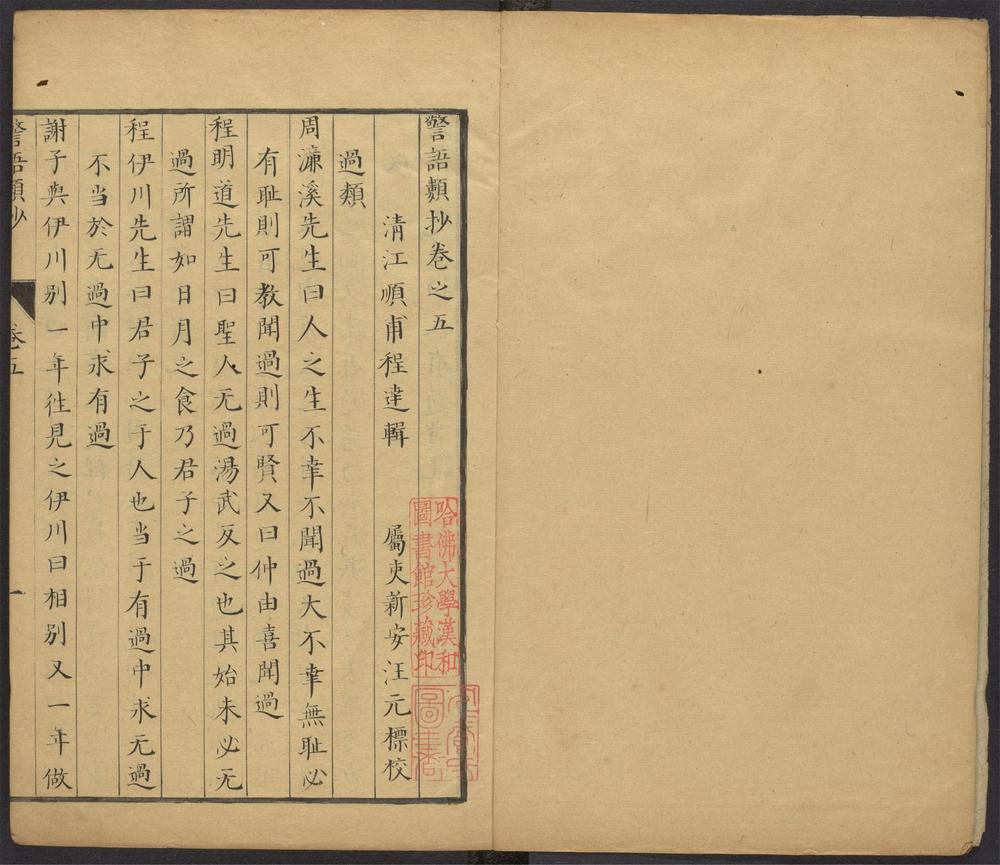 警語類抄卷之五
清江順甫程達輯 屬吏新安汪元標校
過類
周濂溪先生曰人之生不幸不聞過大不幸無耻必
有耻則可教聞過則可賢又曰仲由喜聞過
程明道先生曰聖人无過湯武反之也其始未必无
過所謂如日月之食乃君子之過
程伊川先生曰君子之于人也当于有過中求无過
不当於无過中求有過
謝子與伊川别一年徃見之伊川曰相别又一年做
警語類抄
卷五
一
哈佛大學漢和
圖書館珍藏印